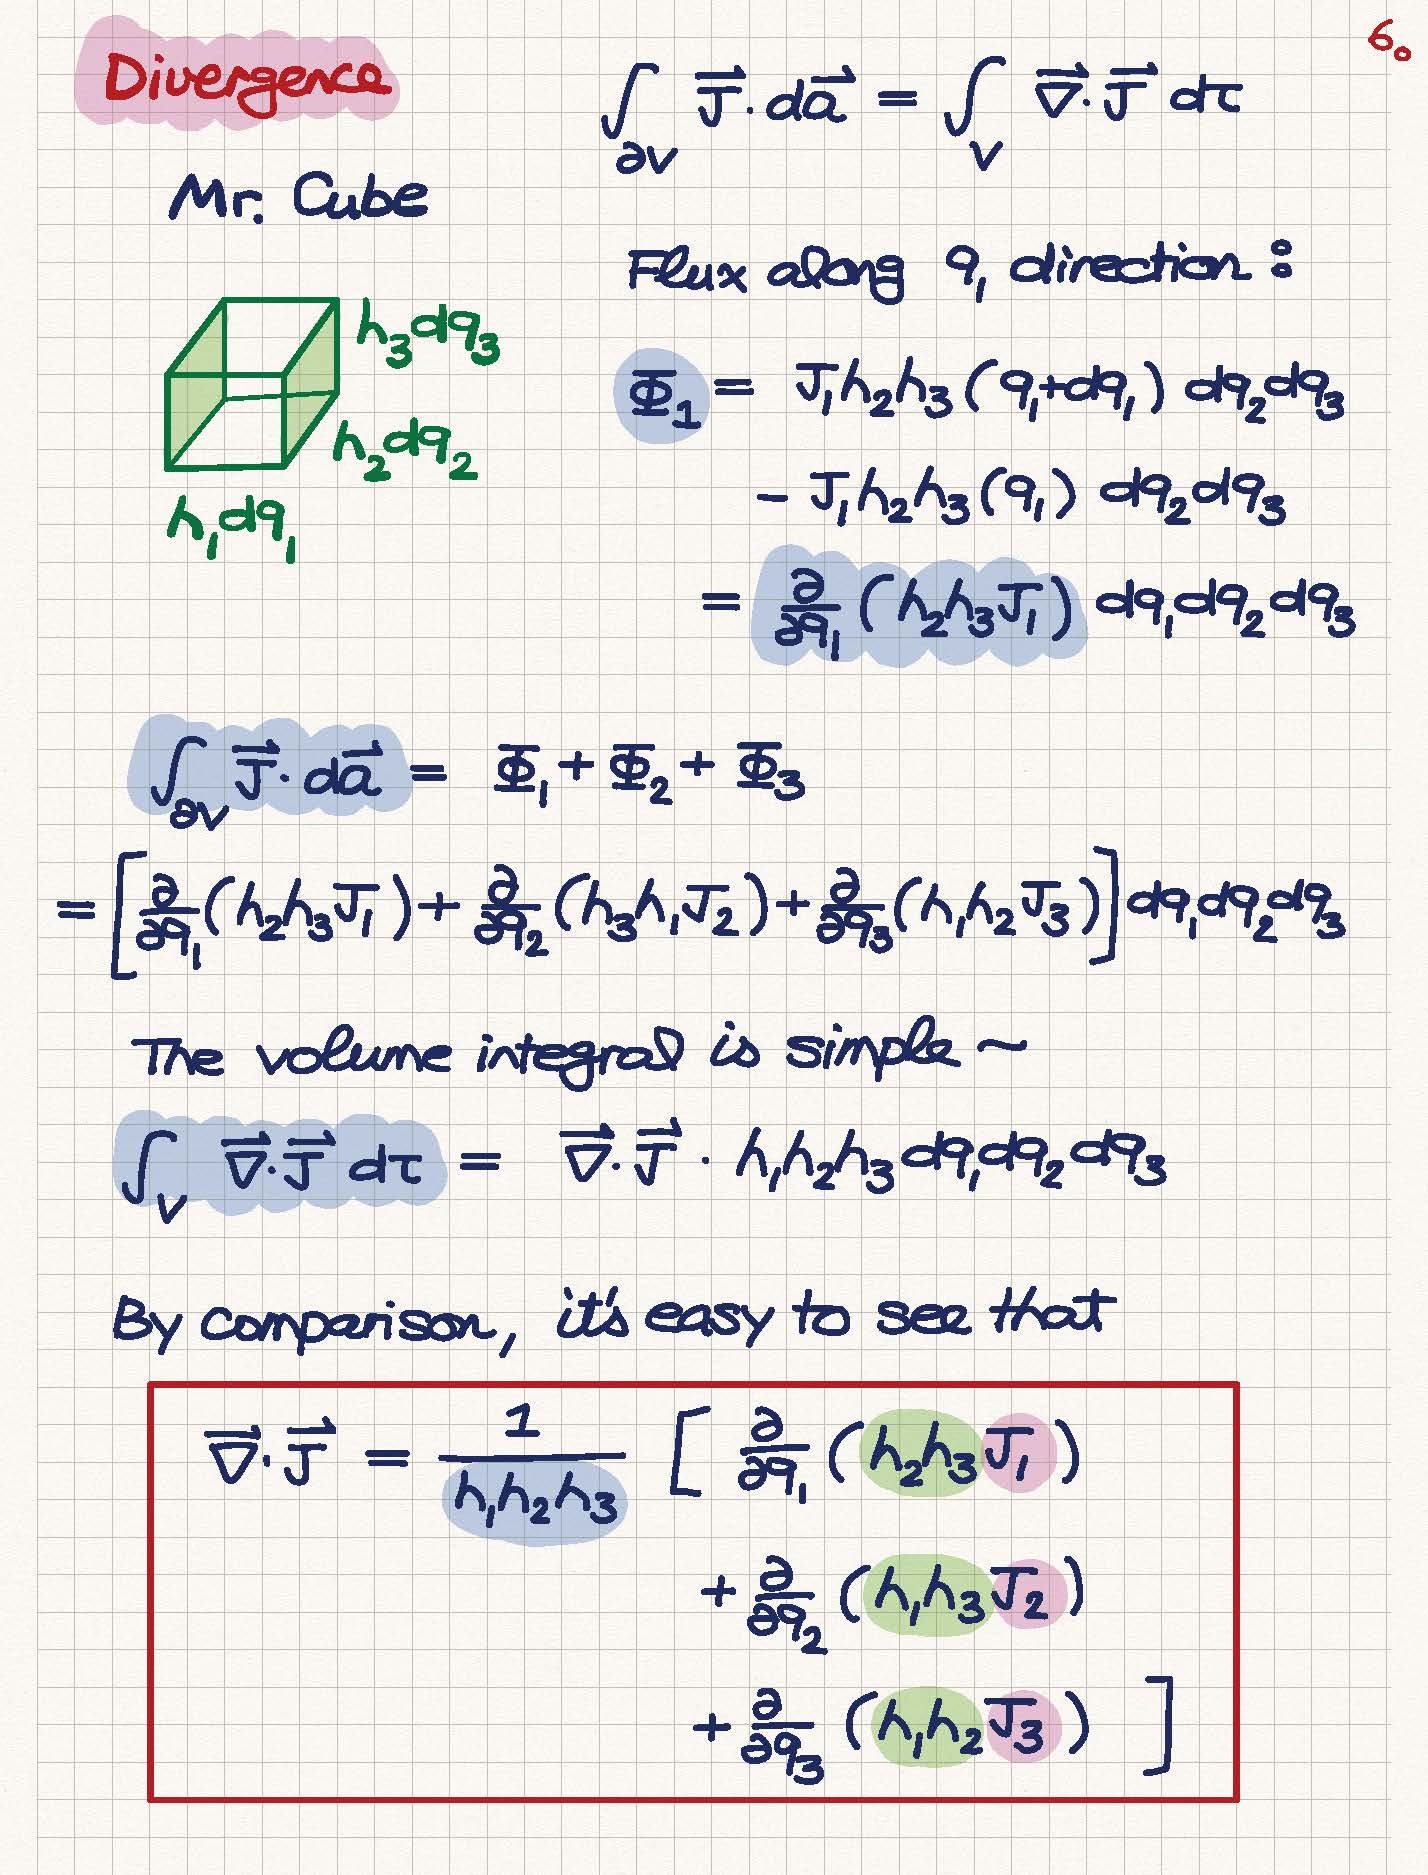 6.
Divergence
∫_∂V J⃗ · da⃗ = ∫_V ∇⃗ · J⃗ dτ
Mr. Cube
Flux along q₁ direction :
h₃dq₃
h₂dq₂
h₁dq₁
Φ₁ = J₁h₂h₃ (q₁+dq₁) dq₂dq₃
- J₁h₂h₃ (q₁) dq₂dq₃
= ∂/∂q₁ (h₂h₃J₁) dq₁dq₂dq₃
∫_∂V J⃗ · da⃗ = Φ₁ + Φ₂ + Φ₃
= [ ∂/∂q₁ (h₂h₃J₁) + ∂/∂q₂ (h₃h₁J₂) + ∂/∂q₃ (h₁h₂J₃) ] dq₁dq₂dq₃
The volume integral is simple ~
∫_V ∇⃗ · J⃗ dτ = ∇⃗ · J⃗ · h₁h₂h₃ dq₁dq₂dq₃
By comparison, it's easy to see that
∇⃗ · J⃗ = 1/(h₁h₂h₃) [ ∂/∂q₁ (h₂h₃J₁)
+ ∂/∂q₂ (h₁h₃J₂)
+ ∂/∂q₃ (h₁h₂J₃) ]